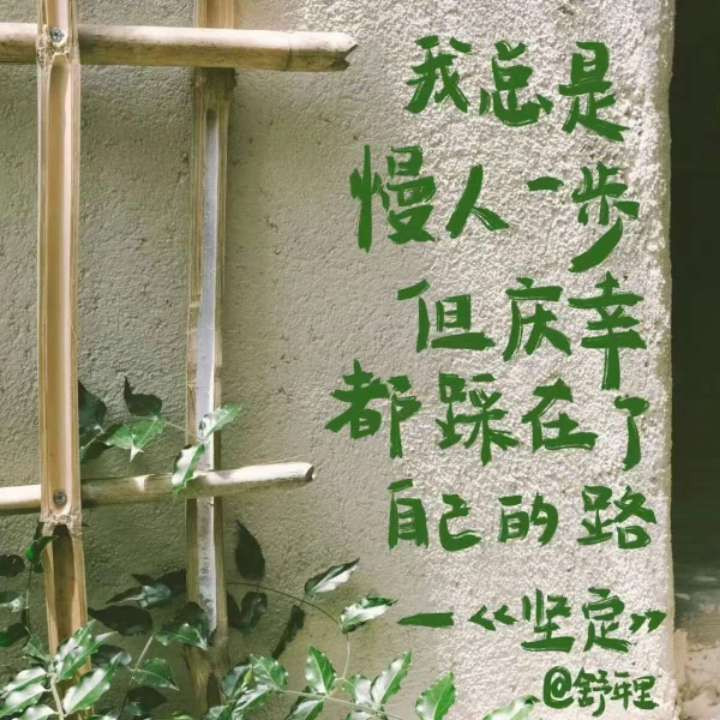 我总是
慢人一步
但庆幸
都踩在了
自己的路
一《坚定》
@舒平里